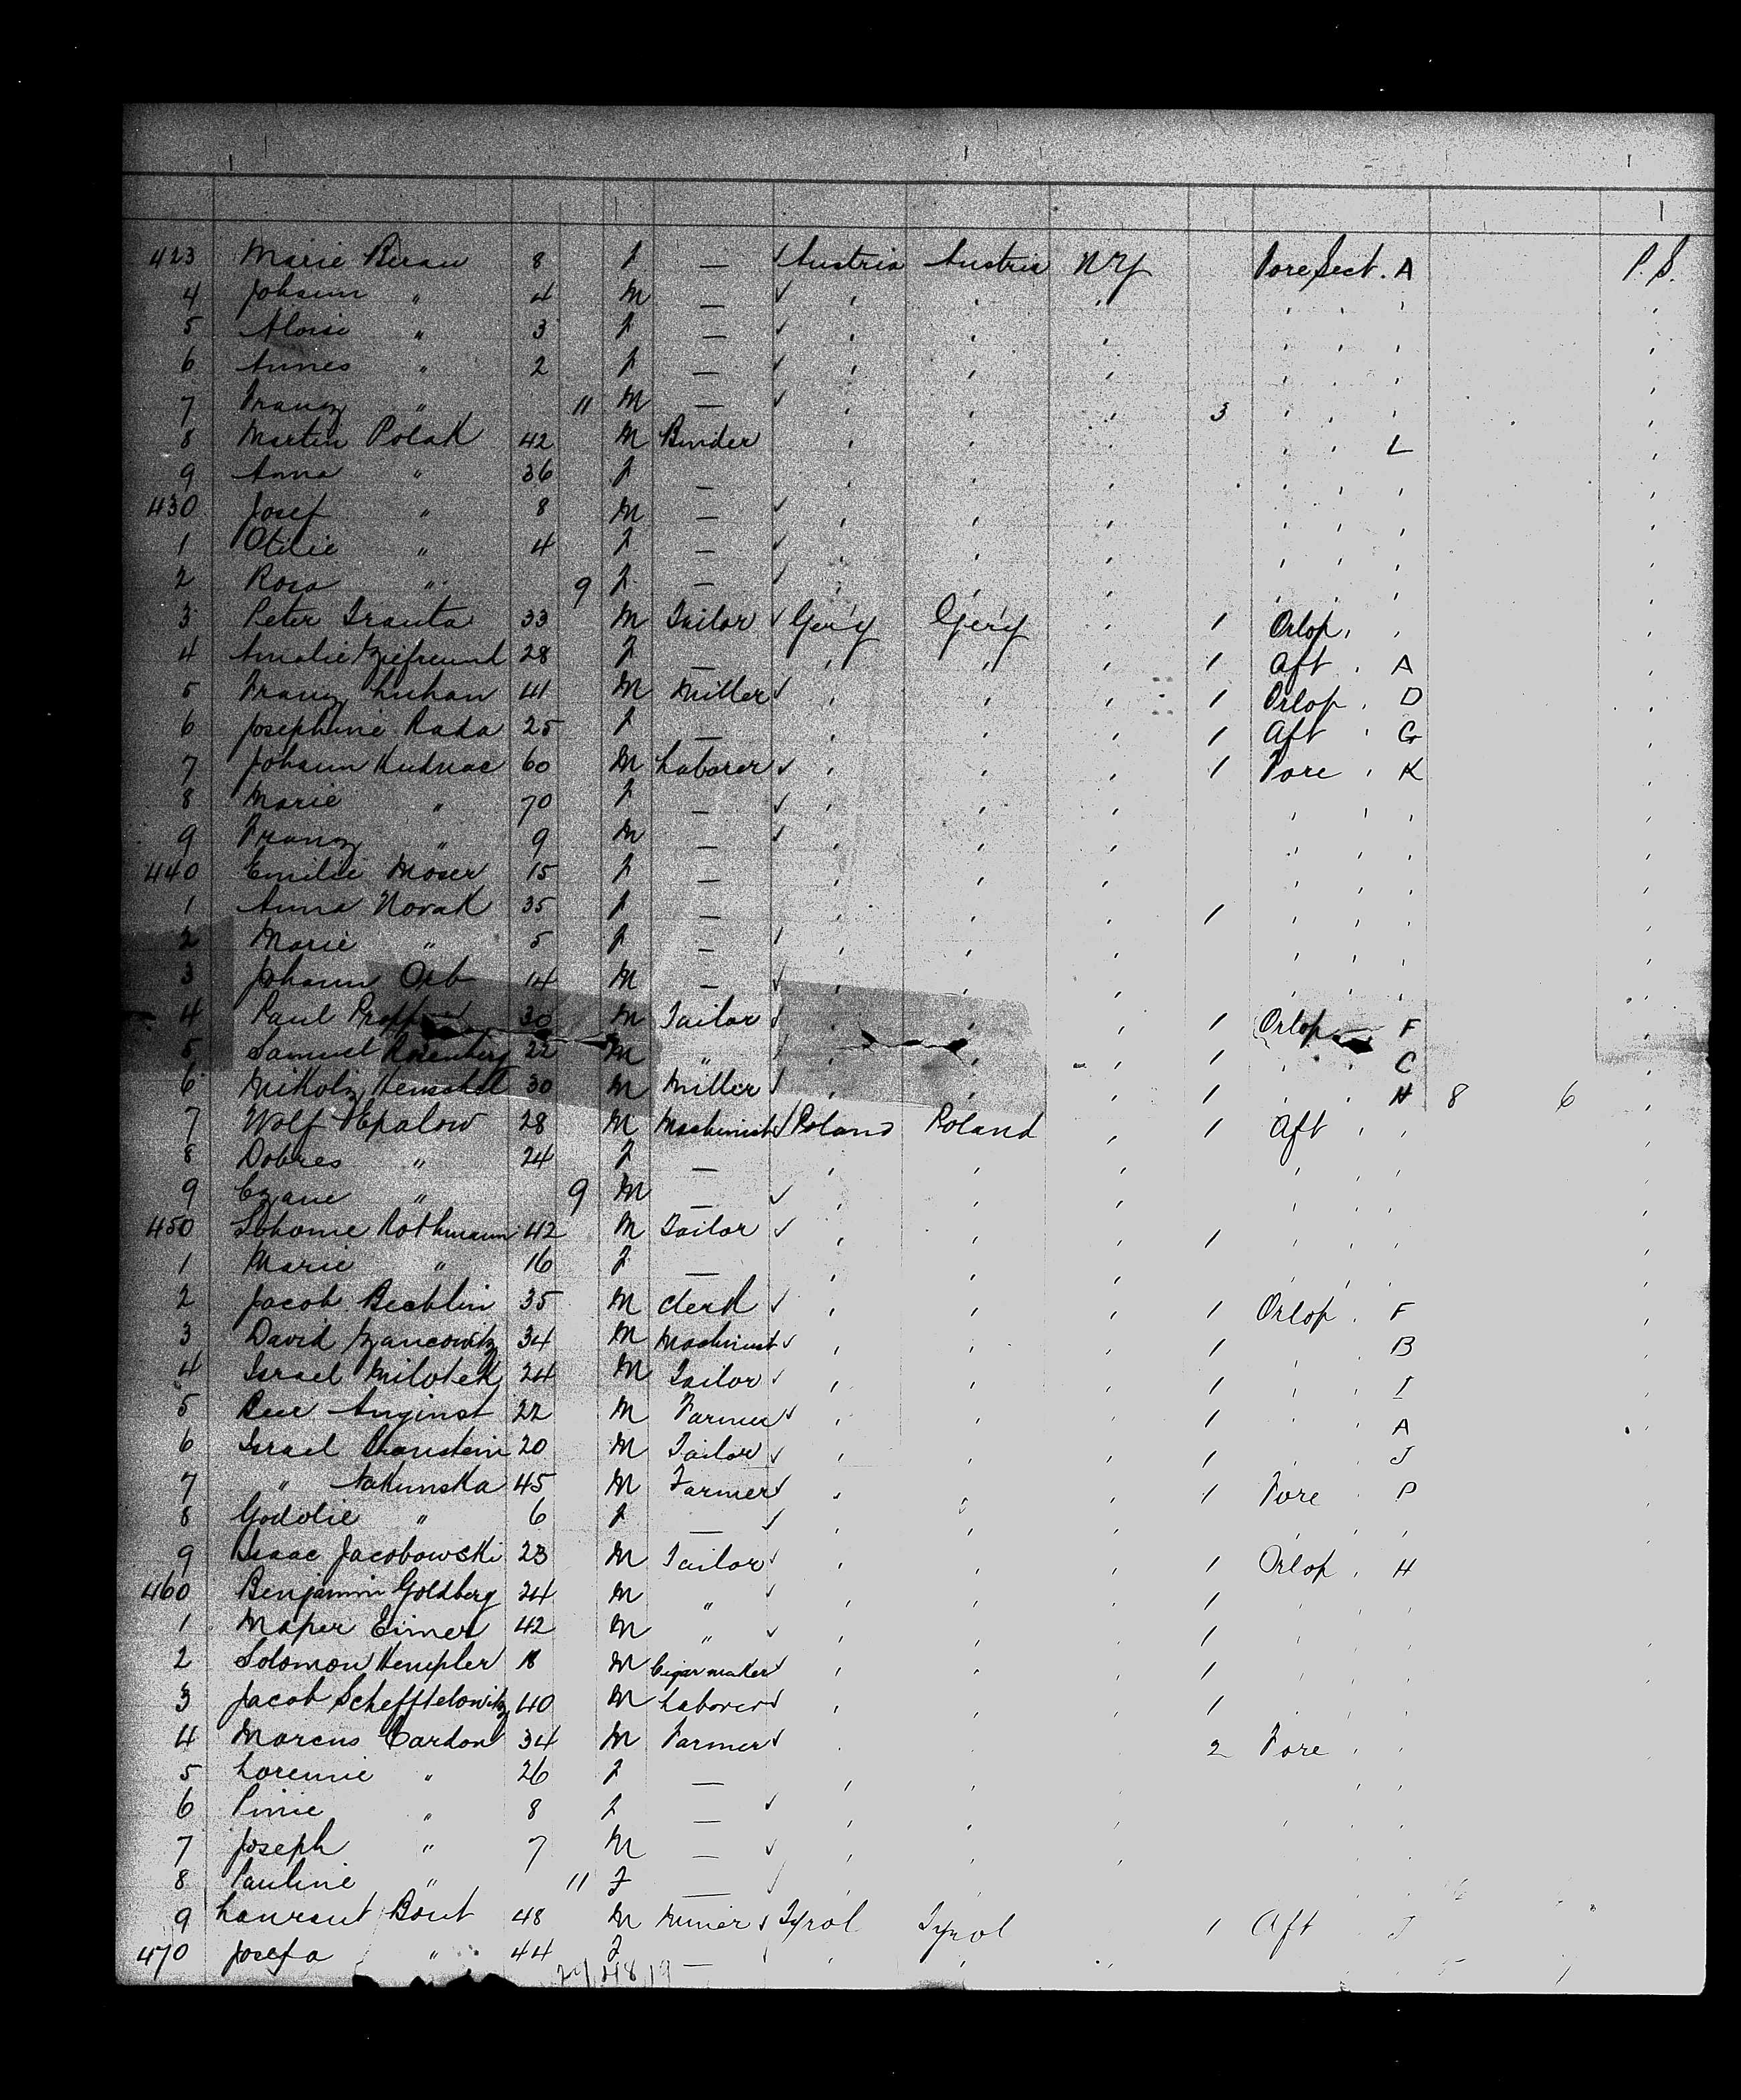 423 Marie Beran 8 f — ✓ Austria Austria N.Y. Fore Sect. A P.S.
4 Johann " 4 M — ✓ ' ' ' ' ' ' '
5 Aloisi " 3 f — ✓ ' ' ' ' ' ' '
6 Annes " 2 f — ✓ ' ' ' ' ' ' '
7 Franz " 11 M — ✓ ' ' ' 3 ' ' ' '
8 Martin Polak 42 M Binder ' ' ' ' ' L '
9 Anna " 36 f — ' ' ' ' ' ' '
430 Josef " 8 M — ✓ ' ' ' ' ' ' '
1 Otilie " 4 f — ✓ ' ' ' ' ' ' '
2 Rosa " 9 f — ✓ ' ' ' ' ' ' '
3 Peter Trauta 33 M Tailor ✓ Gery Gery ' 1 Orlop ' ' '
4 Amalie 28 f — ' ' ' 1 Aft ' A '
5 Franz Luhan 41 M Miller ✓ ' ' ' 1 Orlop ' D '
6 Josephine Rada 25 f — ' ' ' 1 Aft ' G '
7 Johann Kudnac 60 M Laborer ✓ ' ' ' 1 Fore ' K '
8 Marie " 70 f — ✓ ' ' ' ' ' ' '
9 Franz " 9 M — ✓ ' ' ' ' ' ' '
440 Emilie Moser 15 f — ' ' ' ' ' ' '
1 Anna Novak 35 f — ' ' ' 1 ' ' ' '
2 Marie " 5 f — ' ' ' ' ' ' '
3 Johann Orb 14 M — ✓ ' ' ' ' ' ' '
4 Paul 30 M Tailor ✓ ' ' ' 1 Orlop F '
5 Samuel Rosenberg 22 M " ✓ ' ' ' 1 ' ' C '
6 Mikolz 30 M Miller ✓ ' ' ' 1 ' ' H 8 6 '
7 Wolf Epalow 28 M Machinist ✓ Poland Poland ' 1 Aft ' ' '
8 Dobres " 24 f — ' ' ' ' ' ' '
9 Czane " 9 M — ✓ ' ' ' ' ' ' '
450 Schome Rothmann 42 M Tailor ✓ ' ' ' 1 ' ' ' '
1 Marie " 16 f — ' ' ' ' ' ' '
2 Jacob Bechlin 35 M Clerk ✓ ' ' ' 1 Orlop ' F '
3 David 34 M Machinist ✓ ' ' ' 1 ' ' B '
4 Israel Milotek 24 M Tailor ✓ ' ' ' 1 ' ' I '
5 Anginst 22 M Farmer ✓ ' ' ' 1 ' ' A '
6 Israel 20 M Tailor ✓ ' ' ' 1 ' ' J '
7 " Nakunska 45 M Farmer ✓ ' ' ' 1 Fore ' P '
8 Godolie " 6 f — ✓ ' ' ' ' ' ' '
9 Isaac Jacobowski 23 M Tailor ✓ ' ' ' 1 Orlop ' H '
460 Benjamin Goldberg 24 M " ✓ ' ' ' 1 ' ' '
1 Maper Eimer 42 M " ✓ ' ' ' 1 ' ' '
2 Solomon Kempler 18 M Cigar maker ✓ ' ' ' 1 ' ' ' '
3 Jacob Schefftelowitz 40 M Laborer ✓ ' ' ' 1 ' ' ' '
4 Marcus Cardon 34 M Farmer ✓ ' ' ' 2 Fore ' ' '
5 Lorennie " 26 f — ' ' ' ' ' '
6 Pinie " 8 f — ✓ ' ' ' ' ' '
7 Joseph " 7 M — ✓ ' ' ' ' ' '
8 Pauline " 11 f — ✓ ' ' ' ' '
9 Laurant Bout 48 M Miner ✓ Tyrol Tyrol 1 Aft J
470 Josefa " 44 f — ' ' ' ' '